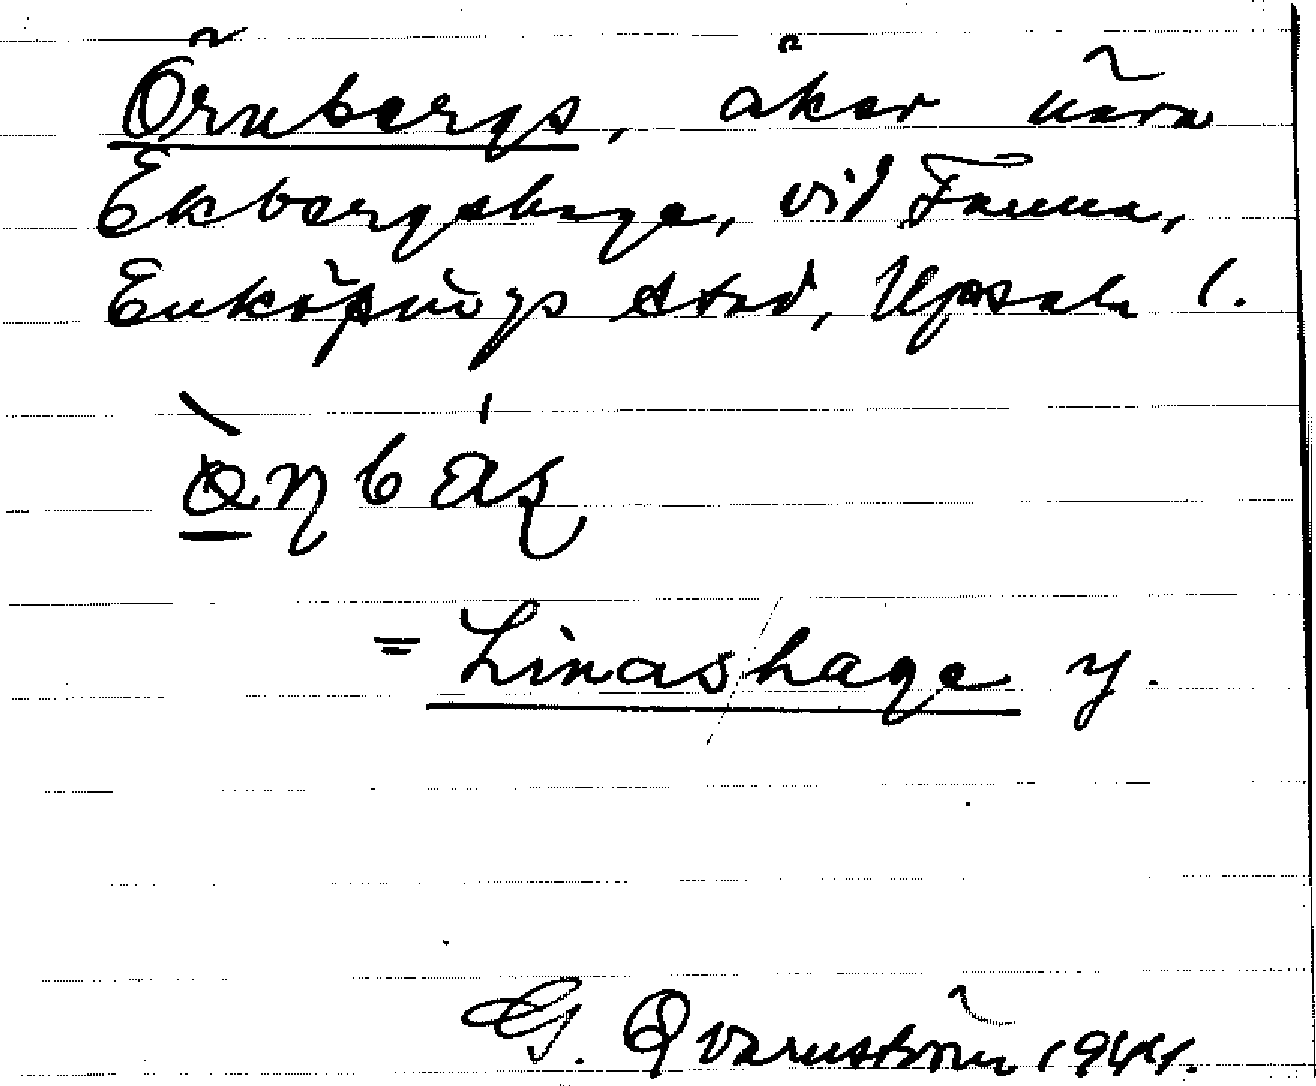 Örnbergs, åker nära
Ekbergshage, vid Fanna,
Enköpings stad, Upsala l.
= Linashage y.
G. Qvarnström 1944.